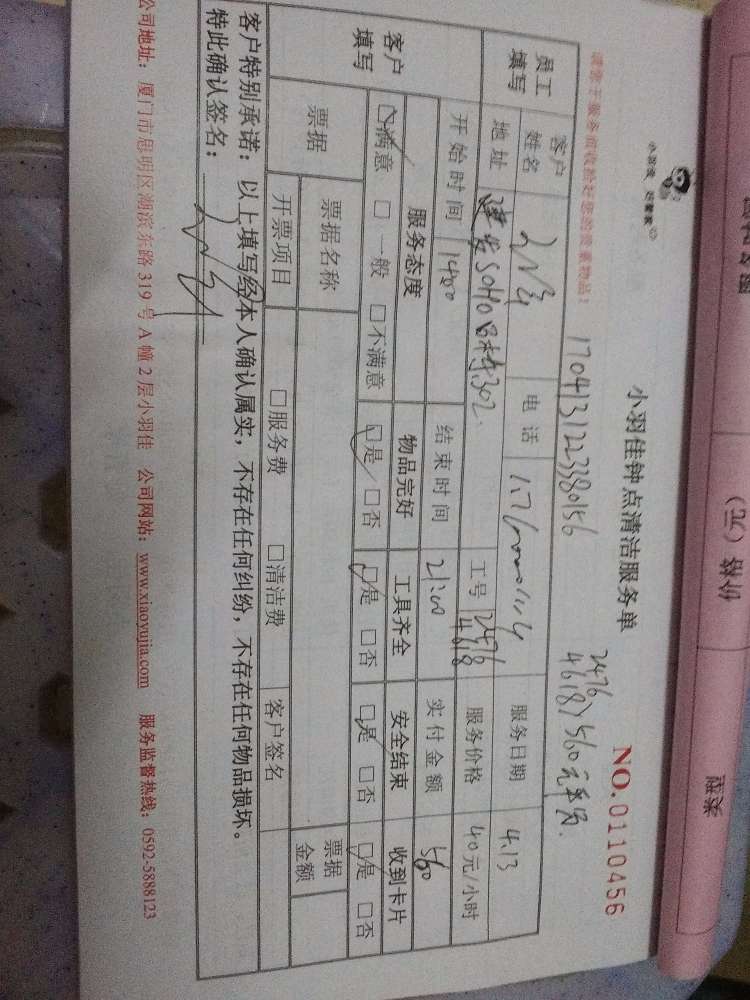 小羽佳钟点清洁服务单
NO.0110456
17041312233380156
2476
4618 560元
员工填写
客户姓名
电话
服务日期 4.13
地址 建发SOHO B栋302
工号 2476 4618
服务价格 40元/小时
开始时间 14:00
结束时间 21:00
实付金额 560
客户填写
服务态度 物品完好 工具齐全 安全结束 收到卡片
☑满意 □一般 □不满意 ☑是 □否 ☑是 □否 ☑是 □否 ☑是 □否
票据
票据名称
票据金额
开票项目 □服务费 □清洁费 客户签名
客户特别承诺：以上填写经本人确认属实，不存在任何纠纷，不存在任何物品损坏。
特此确认签名：
公司地址：厦门市思明区湖滨东路 319 号 A 幢 2 层小羽佳 公司网站：www.xiaoyujia.com 服务监督热线：0592-5888123